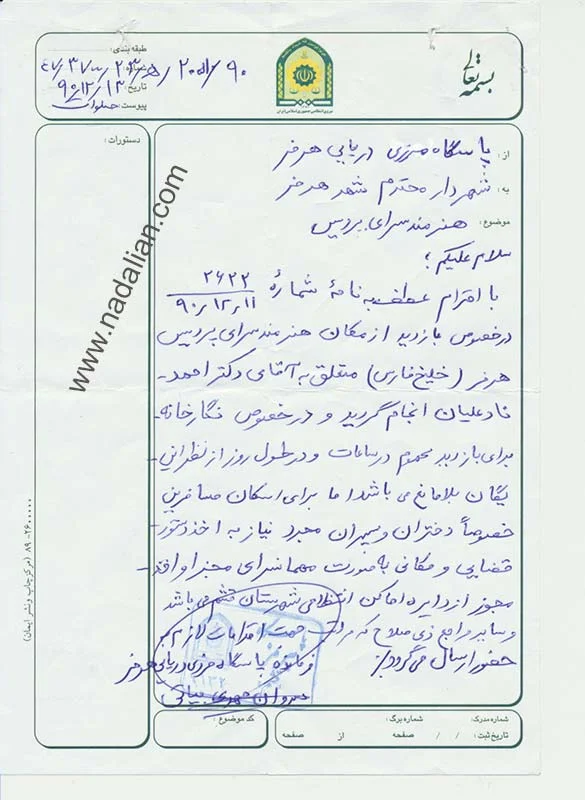 بسمه تعالی
طبقه بندی:
شماره:
تاریخ: ۹۰/۱۲/۱۳
پیوست:
نیروی انتظامی جمهوری اسلامی ایران
دستورات:
از: پاسگاه مرزی دریایی هرمز
به: شهردار محترم شهر هرمز
موضوع: هنرمند سرای پردیس
سلام علیکم؛
با احترام عطف به نامهٔ شمارهٔ ۲۶۲۲
۹۰/۱۲/۱۱
در خصوص بازدید از مکان هنرمند سرای پردیس
هرمز (خلیج فارس) متعلق به آقای دکتر احمد
نادعلیان انجام گردید و در خصوص نگارخانه
برای بازدید عموم در ساعات و در طول روز از نظر این
یگان بلامانع می باشد اما برای اسکان مسافرین
خصوصاً دختران و پسران مجرد نیاز به اخذ دستور
قضایی و مکانی به صورت مهمانسرای مجزا و اخذ
مجوز از دایره اماکن انتظامی شهرستان قشم می باشد
و سایر مراجع ذی صلاح که مراتب جهت اقدامات لازم به
حضور ارسال می گردد
فرمانده پاسگاه مرزی دریایی هرمز
www.nadalian.com
(مرکز چاپ و نشر ایمان) ۸۹-۲۶۰۰۰۰۰
کد موضوع:
شماره مدرک:
شماره برگ:
تاریخ ثبت: / /
صفحه از صفحه